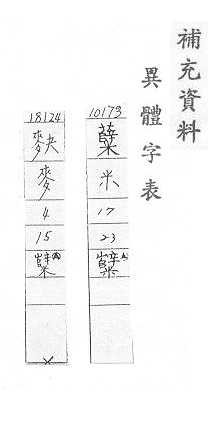 補充資料
異體字表
10173
糵
米
17
23
18124
麥
4
15